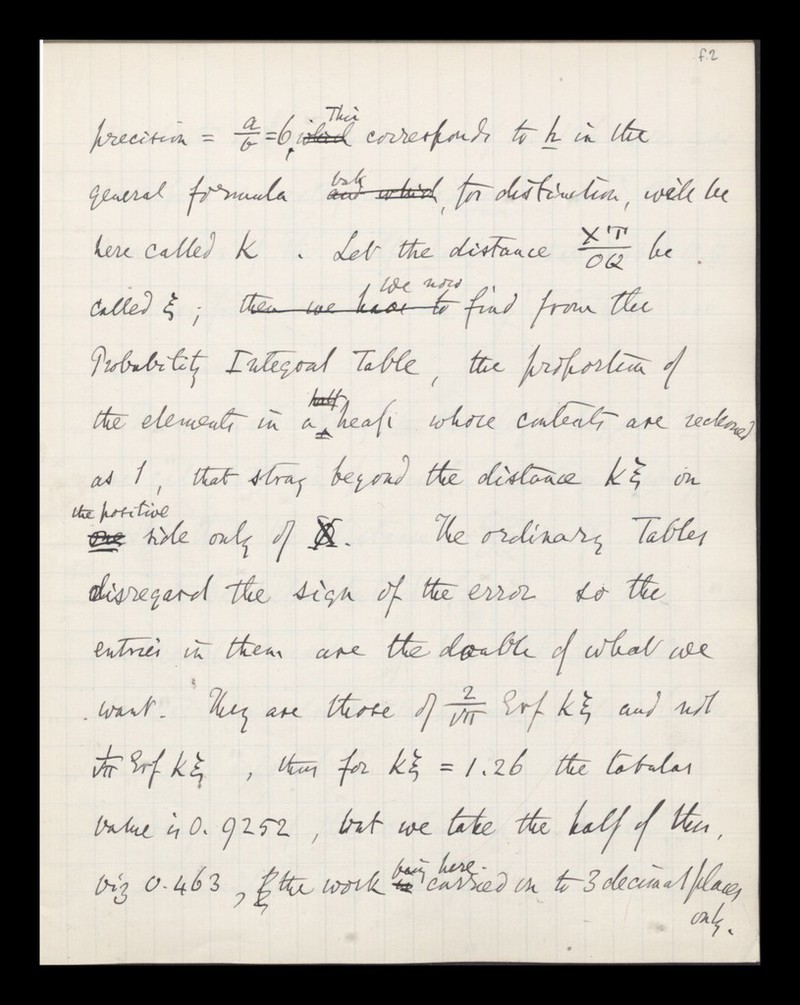 f.2
precision = a/b = 6, which This corresponds to h in the
general formula and which but, for distinction, will be
here called K . Let the distance XT/OQ be
called ξ ; then we have to we now find from the
Probability Integral Table, the proportion of
the elements in a half heap whose contents are reckoned
as 1, that stray beyond the distance Kξ on
one the positive side only of X. The ordinary Tables
disregard the sign of the error so the
entries in them are the double of what we
want. They are those of 2/√π Erf Kξ and not
1/√π Erf Kξ , thus for Kξ = 1.26 the tabular
value is 0.9252 , but we take the half of this,
viz 0.463 , the work is being here carried on to 3 decimal places
only.